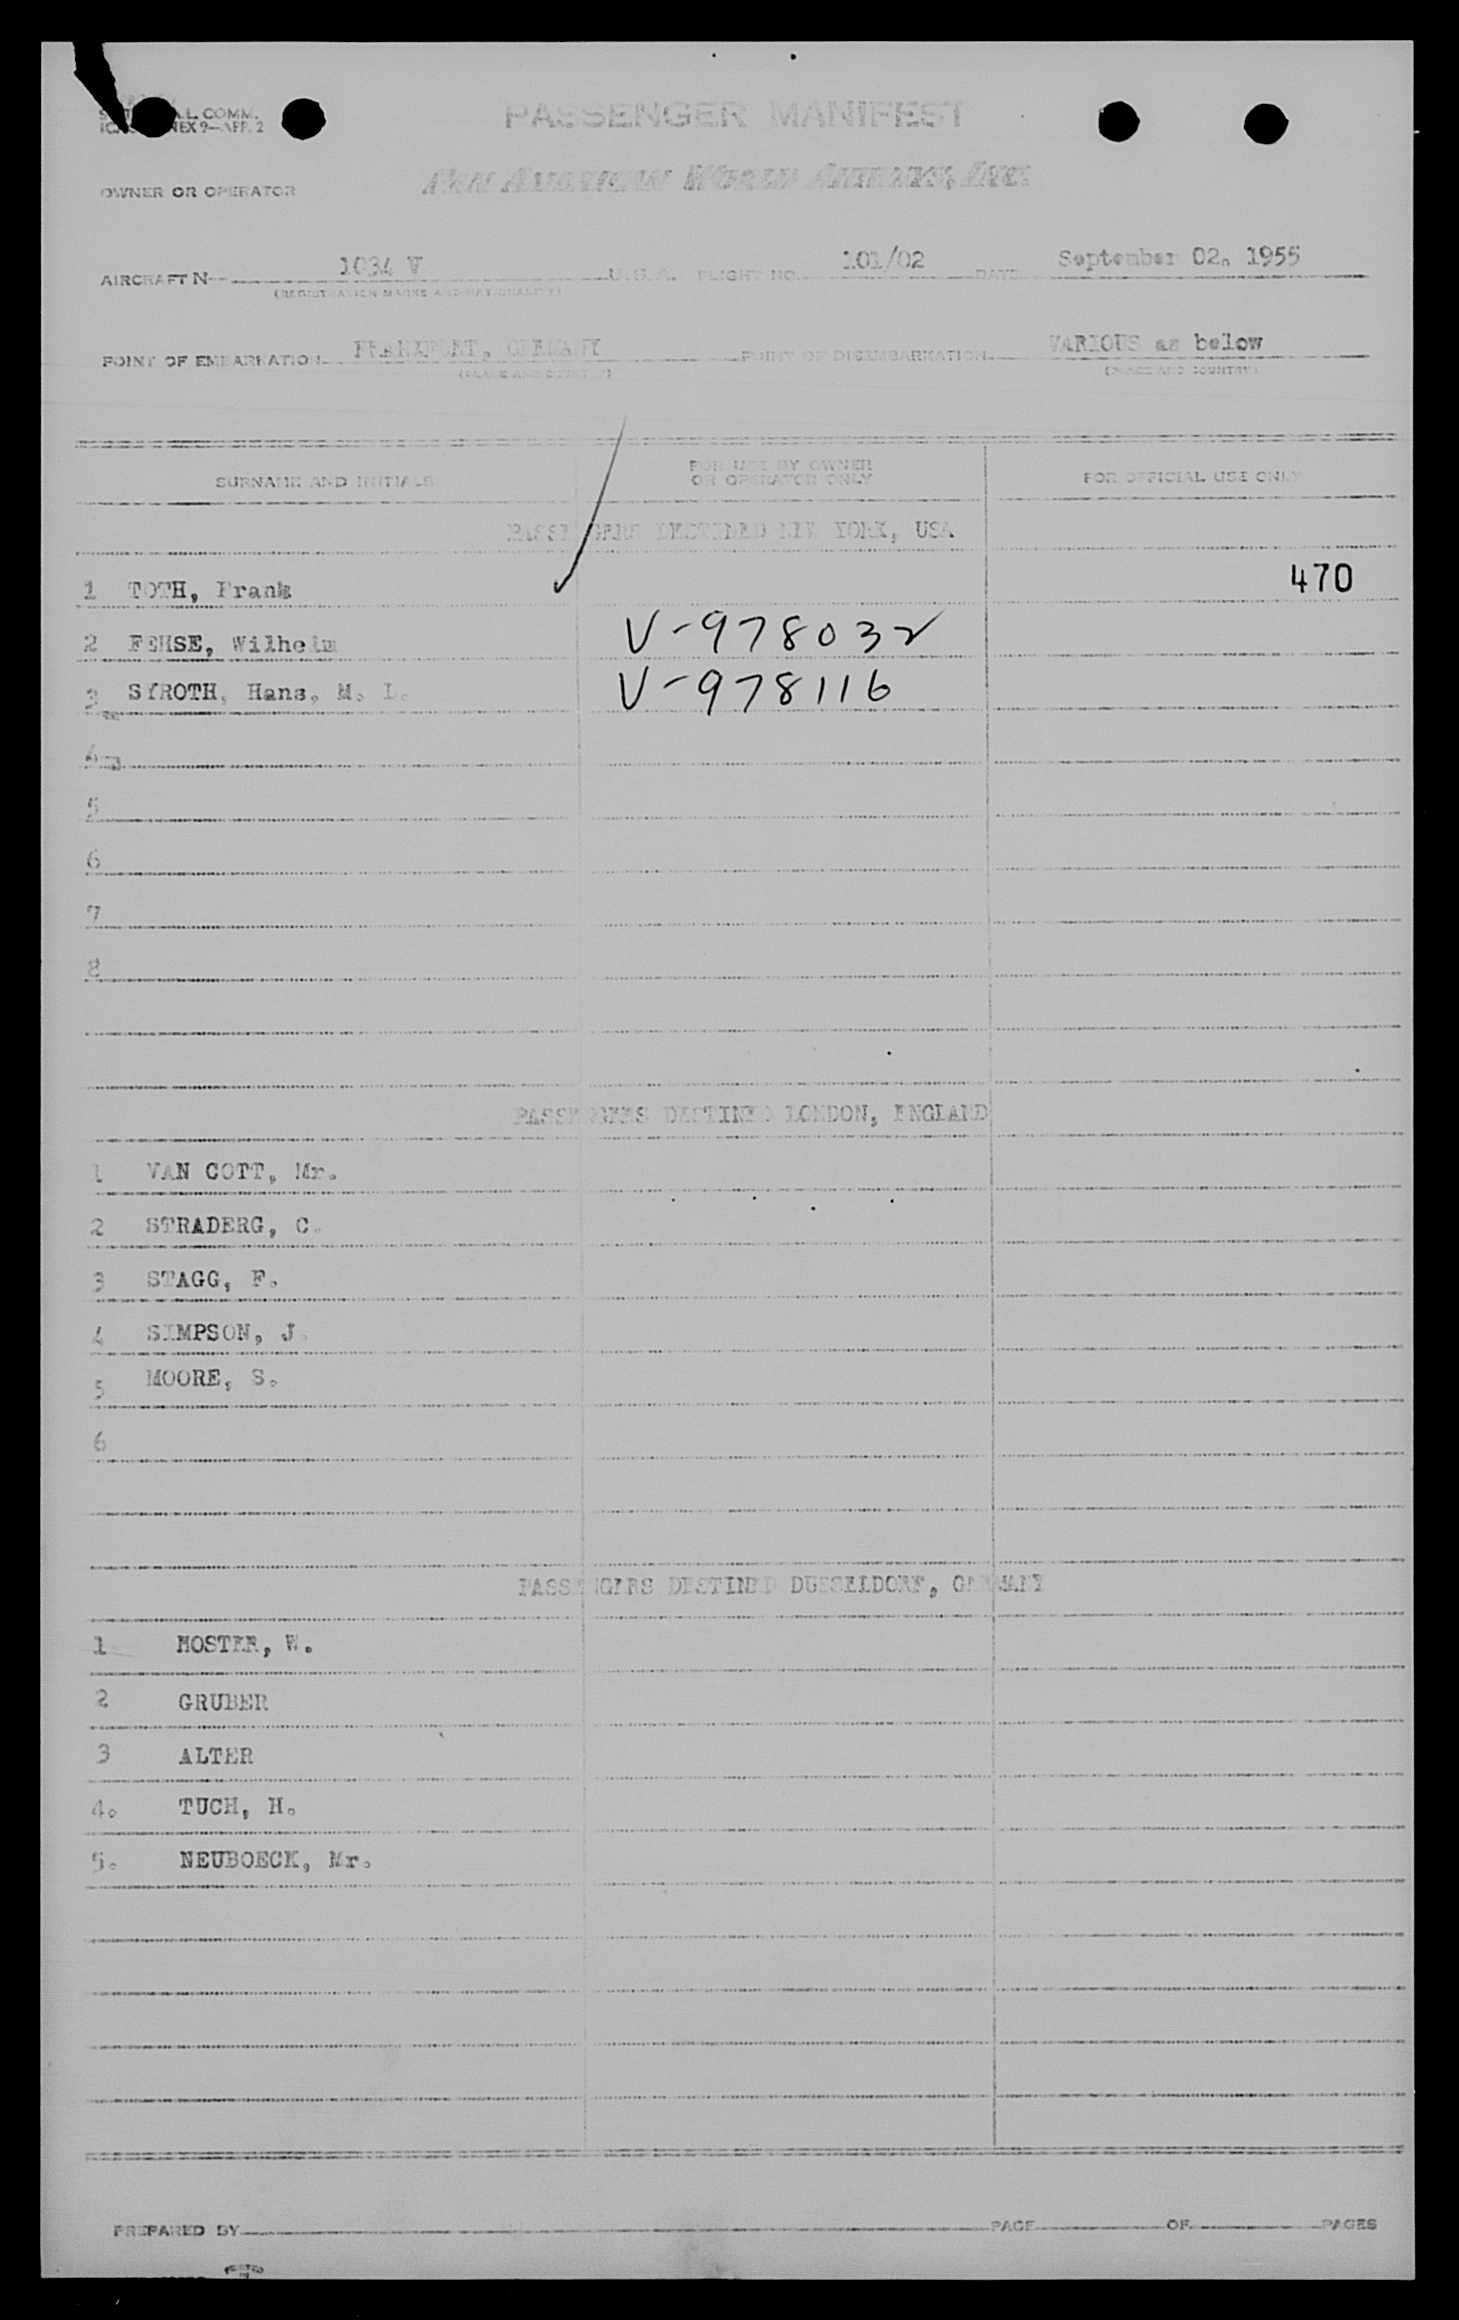 PASSENGER MANIFEST
L. COMM.
NEX 9—APP. 2
OWNER OR OPERATOR PAN AMERICAN WORLD AIRWAYS, INC.
AIRCRAFT N- 1034 V U.S.A. FLIGHT NO. 101/02 DATE September 02. 1955
(REGISTRATION MARKS AND NATIONALITY)
POINT OF EMBARKATION FRANKFURT, GERMANY POINT OF DISEMBARKATION VARIOUS as below
(PLACE AND COUNTRY) (PLACE AND COUNTRY)
SURNAME AND INITIALS FOR USE BY OWNER OR OPERATOR ONLY FOR OFFICIAL USE ONLY
PASSENGERS DESTINED NEW YORK, USA
1 TOTH, Frank 470
2 FEHSE, Wilhelm V-978032
3 SYROTH, Hans, M. L. V-978116
4
5
6
7
8
PASSENGERS DESTINED LONDON, ENGLAND
1 VAN COTT, Mr.
2 STRADERG, C.
3 STAGG, F.
4 SIMPSON, J.
5 MOORE, S.
6
PASSENGERS DESTINED DUESSELDORF, GERMANY
1 MOSTER, W.
2 GRUBER
3 ALTER
4. TUCH, H.
5. NEUBOECK, Mr.
PREPARED BY PAGE OF PAGES